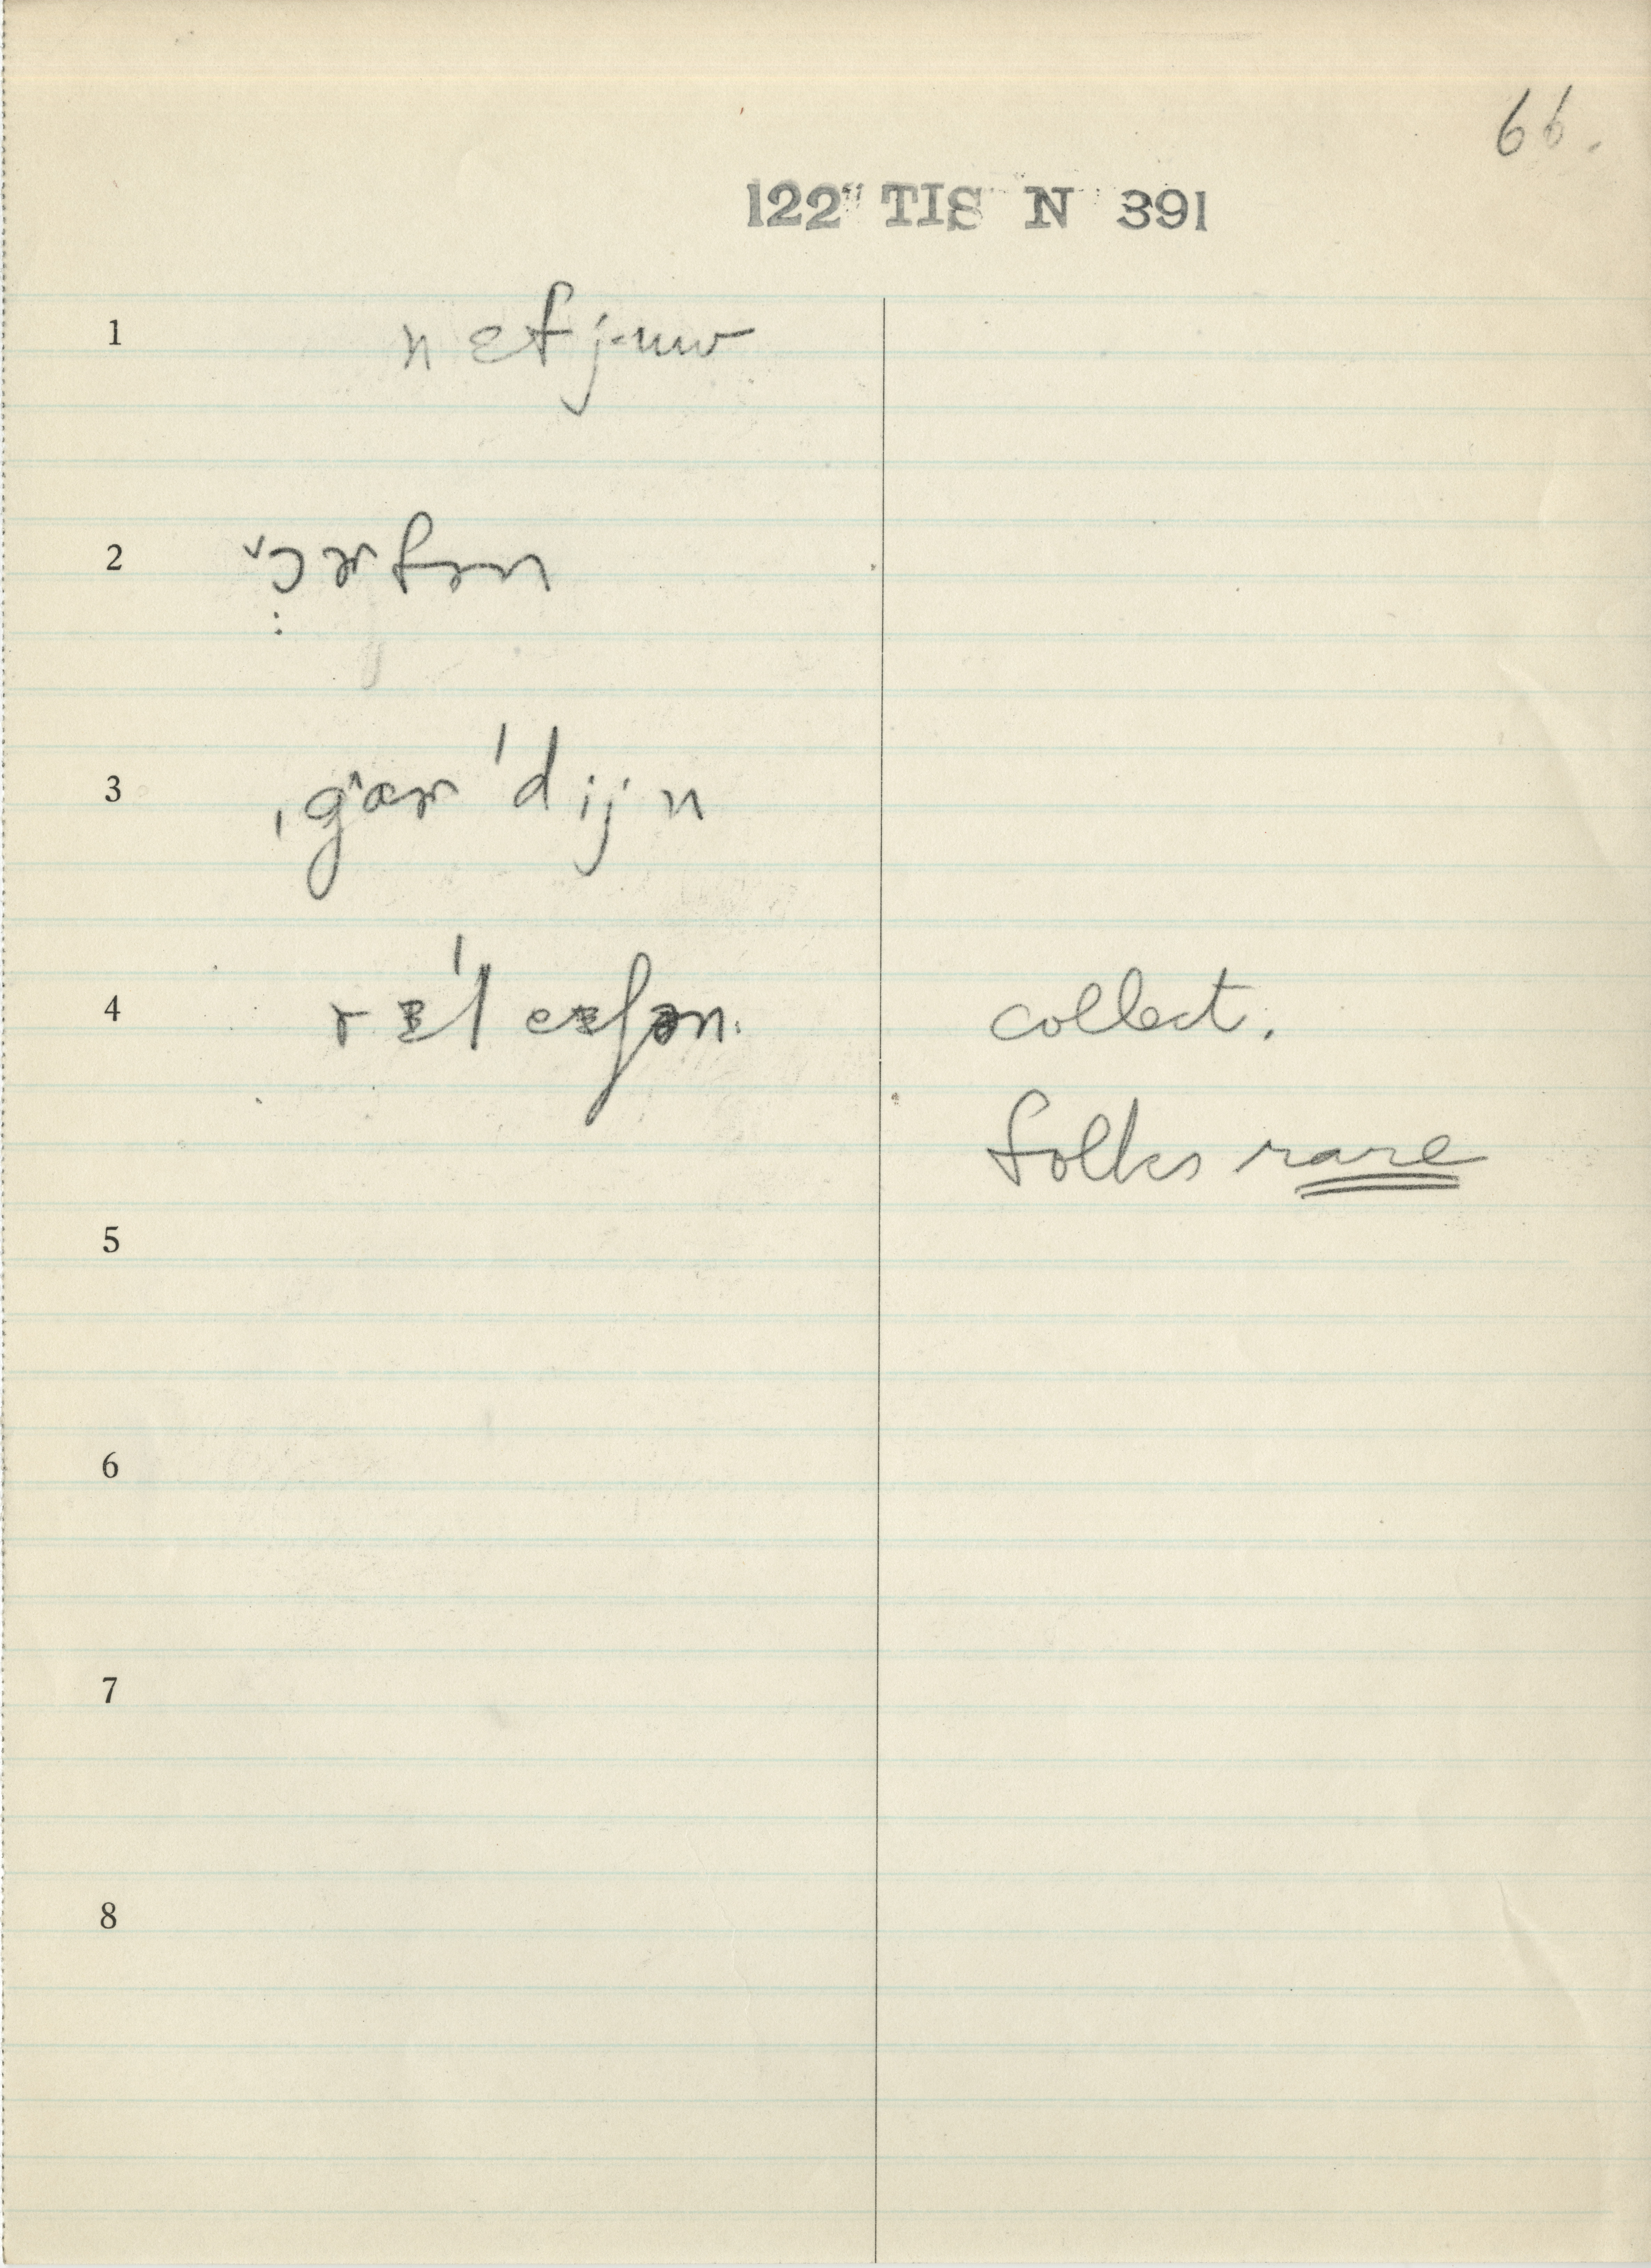 66.
122 TIS N 391
1 nɛfjuw
2 ɔɚfən
3 ˌgɑɚˈdijn
4 rɪˈleɪʃən. collect.
folks rare
5
6
7
8